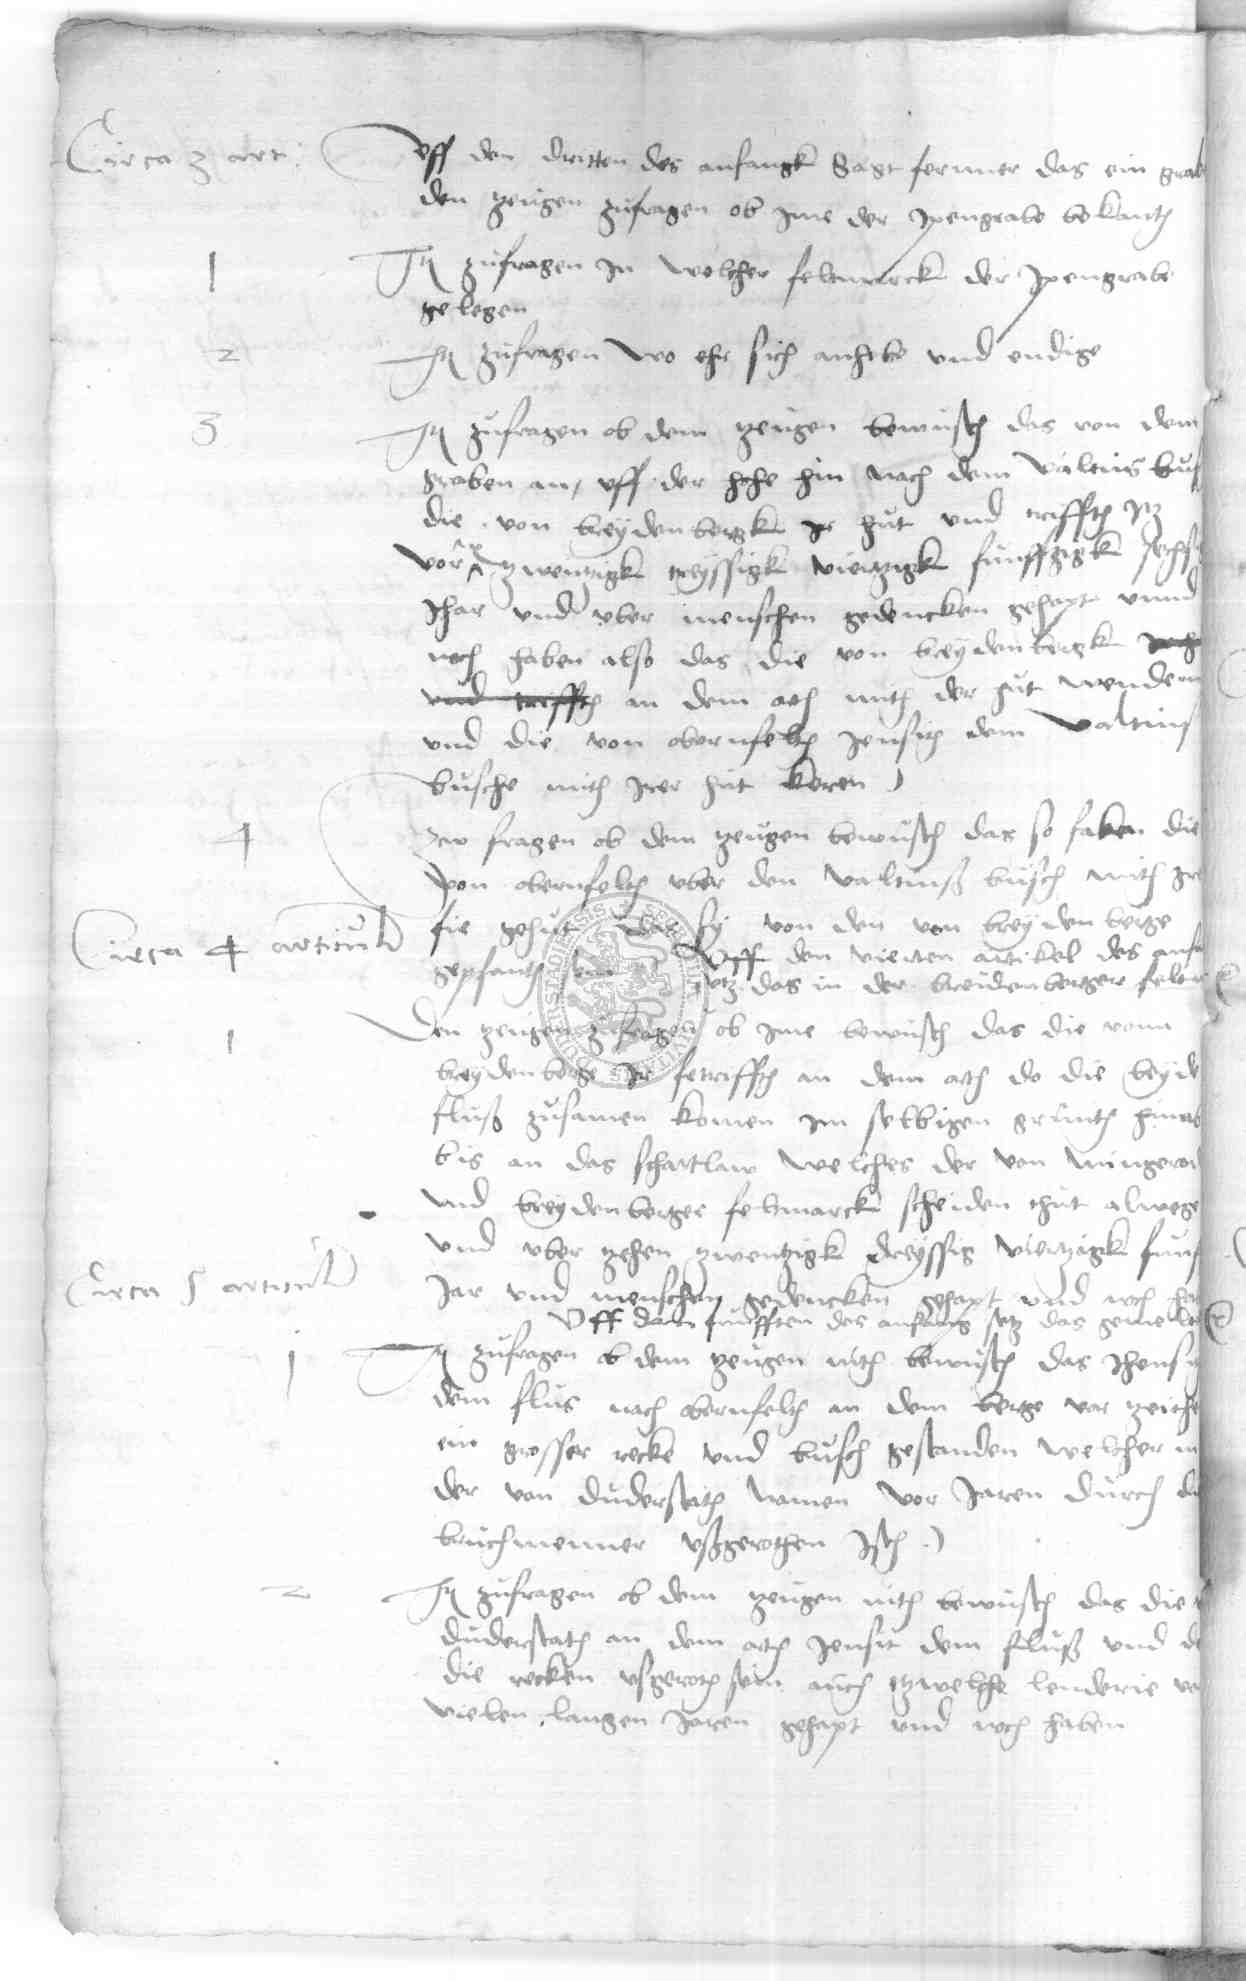 Circa 3 art:
Uff den dritten des anfangk sagt ferner das ein grab
den zeugen zufragen ob ime der Ipengrabe bekanth
1
It zufragen in welcher feltmarck der Ipengrabe
gelegen
2
It zufragen wo ehr sich anhebe und endige
3
It zufragen ob dem zeugen bewusth das von dem
graben an, uff der hohe hin nach dem Valtins bus
die von breydenbergk ir hut und triffth itz
vor x zwentzigk treyssigk viertzigk funffzigk
Jhar und uber menschen gedencken gehapt unnd
noch haben also das die von breydenbergk
und triffth an dem orth mith der hut wenden
und die von obernfelth jensith dem Valtins
busche mith irer hut keren
4
Zw fragen ob dem zeugen bewusth das so faken die
von obernfelth uber den Valtinß busch mith
sie gehut das sy von den von breydenberge
gepfanth
Circa 4 articul
Uff den vierten artikel des anfa
setz das in der breidenberger felt
1
Den zeugen zufragen ob ime bewusth das die vonn
breydenberge ir triffth an dem orth do die beyde
fluß zusamen komen im selbigen grunth hinab
bis an das schartlaw welches der von mingerod
und breydenberger feltmarck scheiden thut alwege
und uber zehen zwentzigk dreyssig viertzigk funf
Jar und menschen gedencken gehapt und noch
Circa 5 articul
Uff dem funfften des anfang setz das gemelte
1
It zufragen ob dem zeugen nith bewusth das jhensit
dem flus nach obernfelth an dem berge vor
ein grosser recke und busch gestanden welcher in
der von duderstath namen vor Jaren durch die
bruchmenner ußgerothen isth
2
It zufragen ob dem zeugen nith bewusth das die
duderstath an dem orth jensit dem fluß und do
die recken usgeroth sein auch etzwelche lenderie vo
vielen langen Jaren gehapt und noch haben